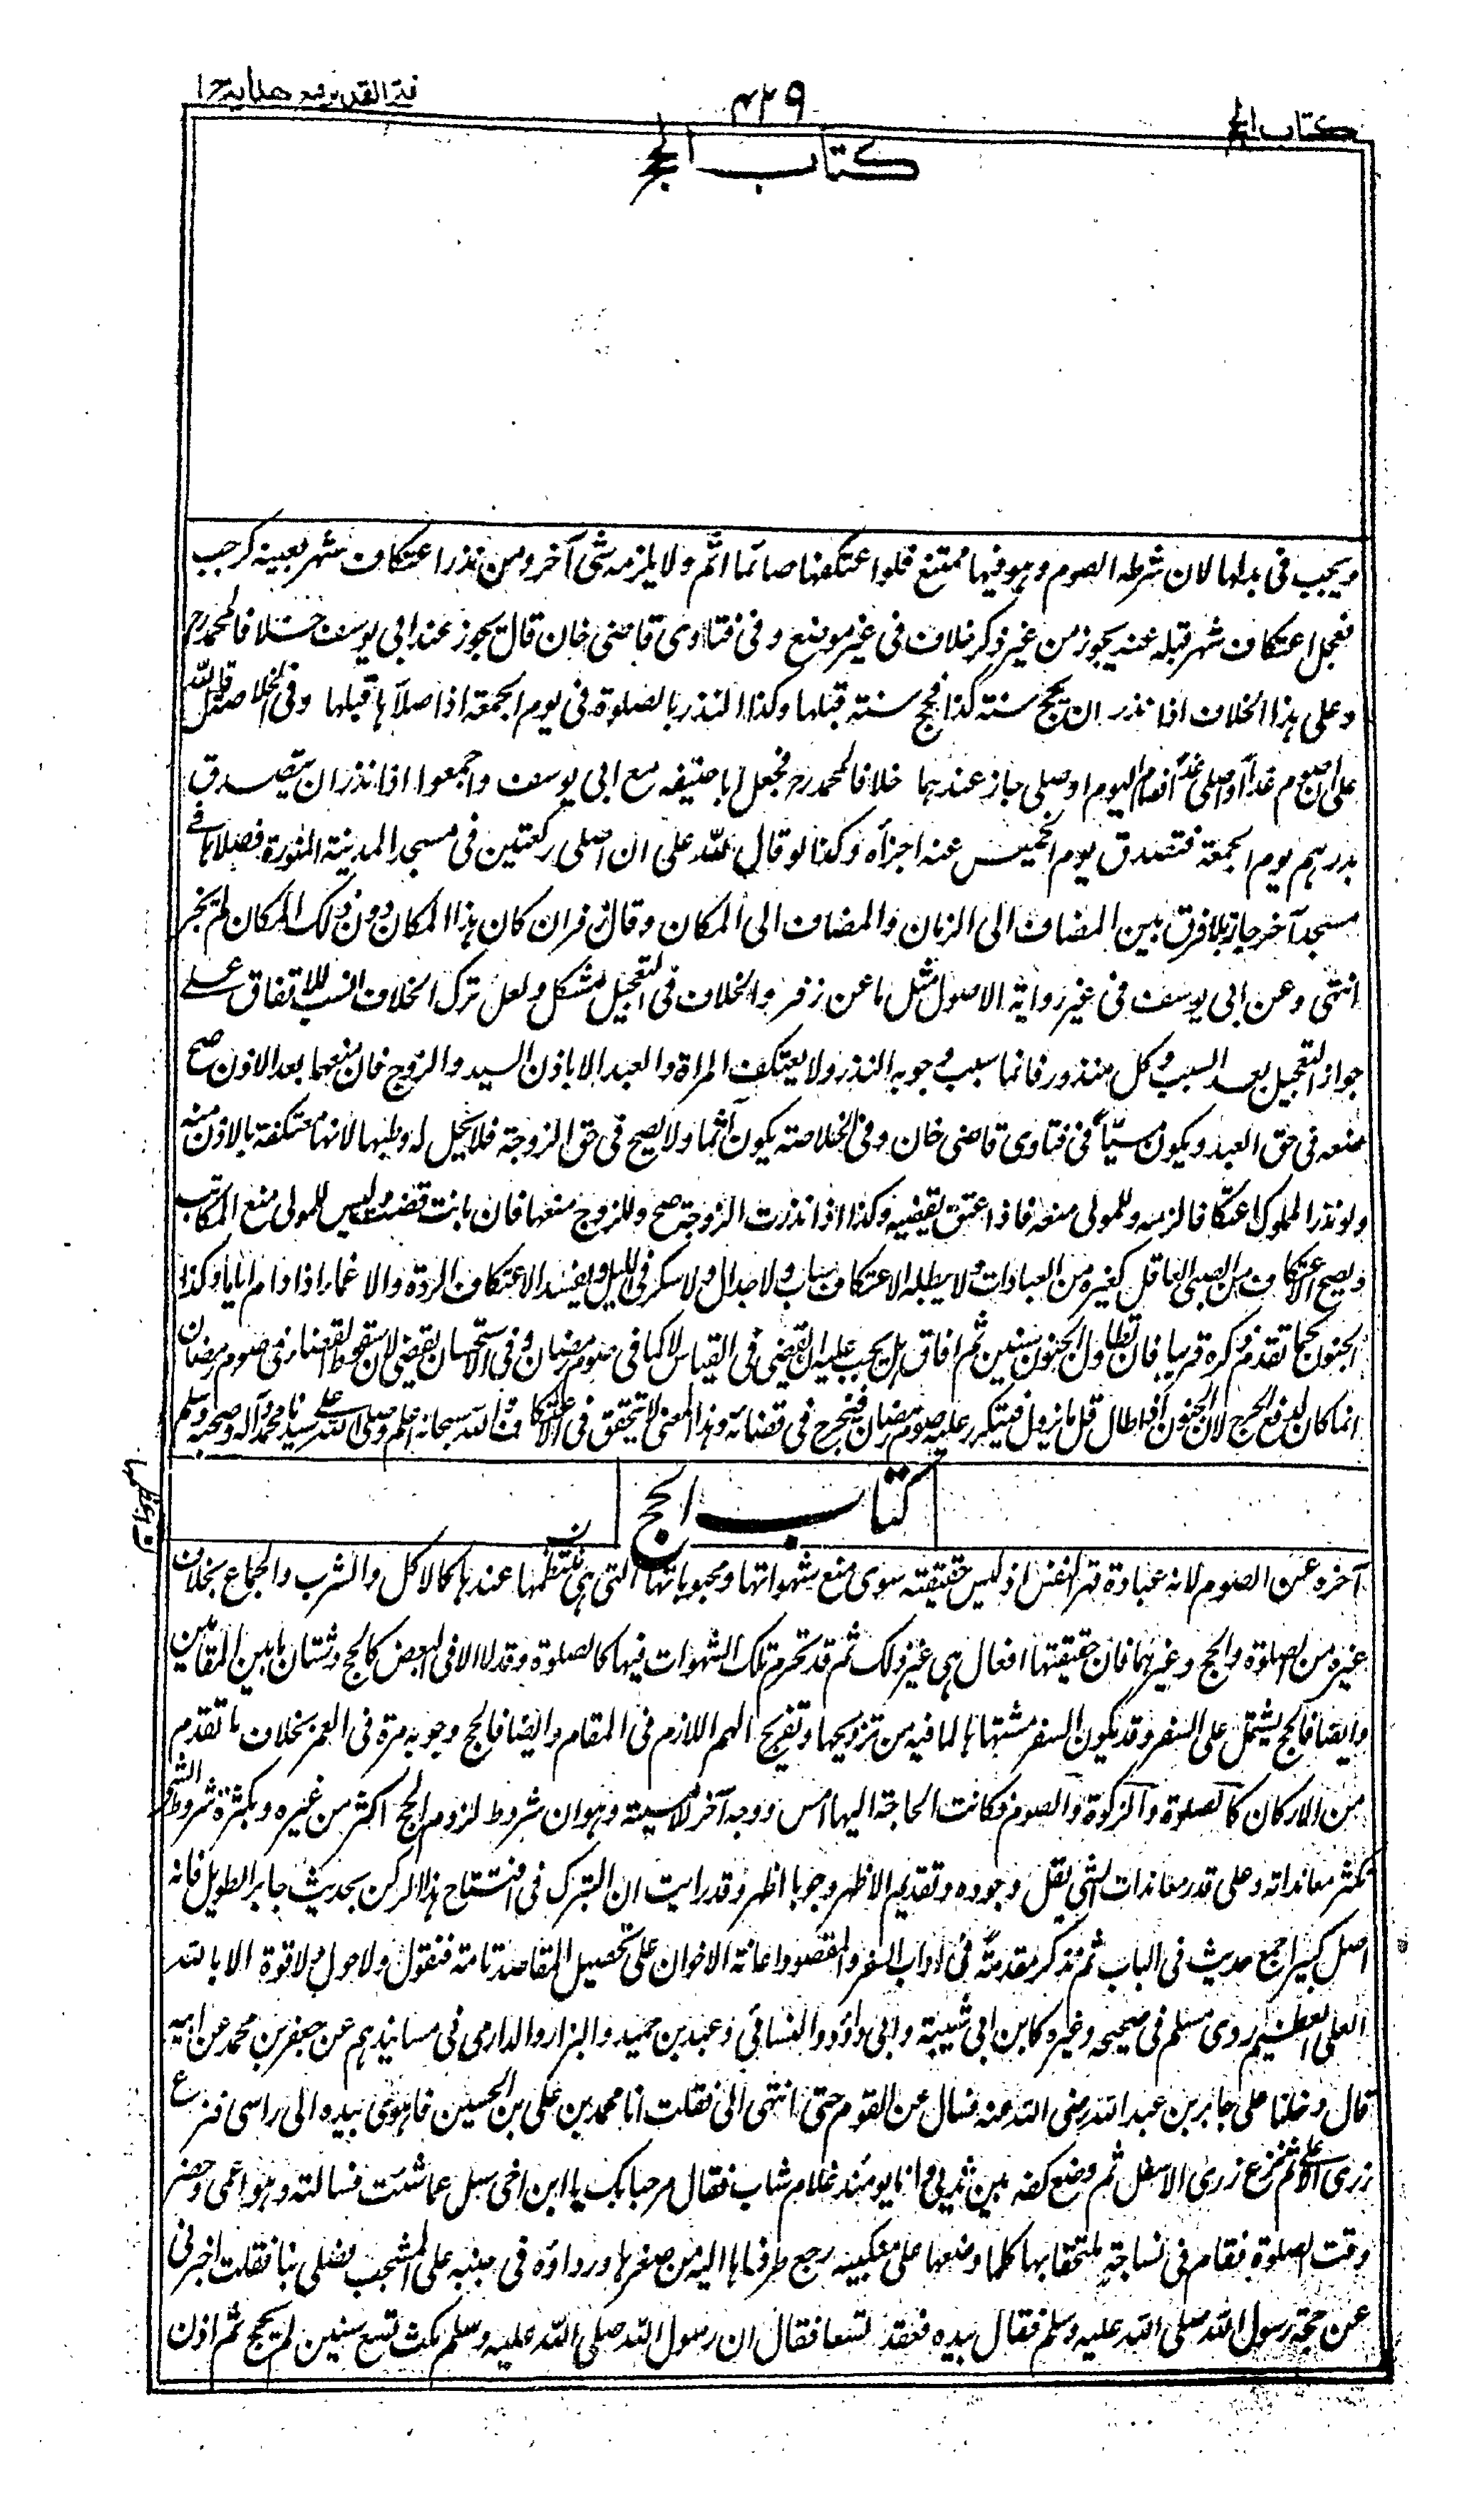 كتاب الحج
۴۲۹
فتح القدير مع هدايه ج ۱
كتاب الحج
ويجب في بدلها لان شرطه الصوم وهو فيها ممتنع فلو اعتكفها صائما اثم ولا يلزمه شئ آخر ومن نذر اعتكاف شهر بعينه كرجب
فعجل اعتكاف شهر قبله عنه يجوز من غير ذكر خلاف في غير موضع وفي فتاوى قاضي خان قال يجوز عند ابي يوسف خلافا لمحمد رح
وعلى هذا الخلاف اذا نذر ان يحج سنة كذا فحج سنة قبلها وكذا النذر بالصلوة في يوم الجمعة اذا صلاها قبلها وفي الخلاصة قال لله
على ان اصوم غدا او اصلي غدا فصام اليوم او صلى جاز عندهما خلافا لمحمد رح فجعل ابا حنيفه مع ابي يوسف واجمعوا اذا نذر ان يتصدق
بدرهم يوم الجمعة فتصدق يوم الخميس عنه اجزأه وكذا لو قال لله على ان اصلي ركعتين في مسجد المدينة المنورة فصلاها في
مسجد آخر جاز بلا فرق بين المضاف الى الزمان والمضاف الى المكان وقال زفر ان كان هذا المكان دون ذلك المكان لم يجز
انتهى وعن ابي يوسف في غير رواية الاصول مثل ما عن زفر والخلاف في التعجيل مشكل ولعل ترك الخلاف انسب للاتفاق على
جواز التعجيل بعد السبب وكل منذور فانما سبب وجوبه النذر ولا يعتكف المراة والعبد الا باذن السيد والزوج فان منعهما بعد الاذن صح
منعه في حق العبد ويكون مسيّئا في فتاوى قاضي خان وفي الخلاصة يكون آثما ولا يصح في حق الزوجة فلا يحل له وطيها لانها معتكفة بالاذن منه
ولو نذر المملوك اعتكافا لزمه وللمولى منعه فاذا عتق يقضيه وكذا اذا نذرت الزوجة صح وللزوج منعها فان بانت قضت وليس للمولى منع المكاتب
ويصح الاعتكاف من الصبي العاقل كغيره من العبادات ولا يبطله الاعتكاف سباب ولا جدال ولا سكر في الليل ويفسد الاعتكاف الردة والاغماء اذا دام اياما وكذا
الجنون كما تقدم ذكره قريبا فان تطاول الجنون سنين ثم افاق هل يجب عليه ان يقضي في القياس لا كما في صوم رمضان وفي الاستحسان يقضي لان سقوط القضاء في صوم رمضان
انما كان لدفع الحرج لان الجنون اذا طال قل ما يزول فيتكرر عليه صوم رمضان فيحرج في قضائه وهذا المعنى لا يتحقق في الاعتكاف والله سبحانه اعلم وصلى الله على سيدنا محمد وآله وصحبه وسلم
كتاب الحج
آخره عن الصوم لانه عبادة قهر النفس اذ ليس حقيقته سوى منع شهواتها ومحبوباتها التي هي عندها كالاكل والشرب والجماع بخلاف
غيره من الصلوة والحج وغيرهما فان حقيقتها افعال هي غير ذلك ثم قد تحرم تلك الشهوات فيها كالصلوة وقد لا الا في البعض كالحج وشتان ما بين المقامين
وايضا فالحج يشتمل على السفر وقد يكون السفر مشتهاها لما فيه من ترويحها وتفريج الهم اللازم في المقام وايضا فالحج وجوبه مرة في العمر بخلاف ما تقدم
من الاركان كالصلوة والزكوة والصوم فكانت الحاجة اليها امس ووجه آخر للامسية وهو ان شروط لزوم الحج اكثر من غيره وبكثرة شروط الشئ
تكثر معانداته وعلى قدر معاندات الشئ يقل وجوده وتقديم الاظهر وجوبا اظهر وقد رايت ان التبرك في افتتاح هذا الركن بحديث جابر الطويل فانه
اصل كبير اجمع حديث في الباب ثم نذكر مقدمة في آداب السفر والمقصود اعانة الاخوان على تحصيل المقاصد تامة فنقول ولا حول ولا قوة الا بالله
العلي العظيم روى مسلم في صحيحه وغيره كابن ابي شيبة وابي داؤد والنسائي وعبد بن حميد والبزار والدارمي في مسانيدهم عن جعفر بن محمد عن ابيه
قال دخلنا على جابر بن عبد الله رضى الله عنه فسال عن القوم حتى انتهى الى فقلت انا محمد بن على بن الحسين فاهوى بيده الى راسى فنزع
زرى الاعلى ثم نزع زرى الاسفل ثم وضع كفه بين ثديي وانا يومئذ غلام شاب فقال مرحبا بك يا ابن اخى سل عما شئت فسالته وهو اعمى وحضر
وقت الصلوة فقام في نساجة ملتحفا بها كلما وضعها على منكبيه رجع طرفاها اليه من صغرها ورداؤه في جنبه على المشجب فصلى بنا فقلت اخبرني
عن حجة رسول الله صلى الله عليه وسلم فقال بيده فعقد تسعا فقال ان رسول الله صلى الله عليه وسلم مكث تسع سنين لم يحج ثم اذن